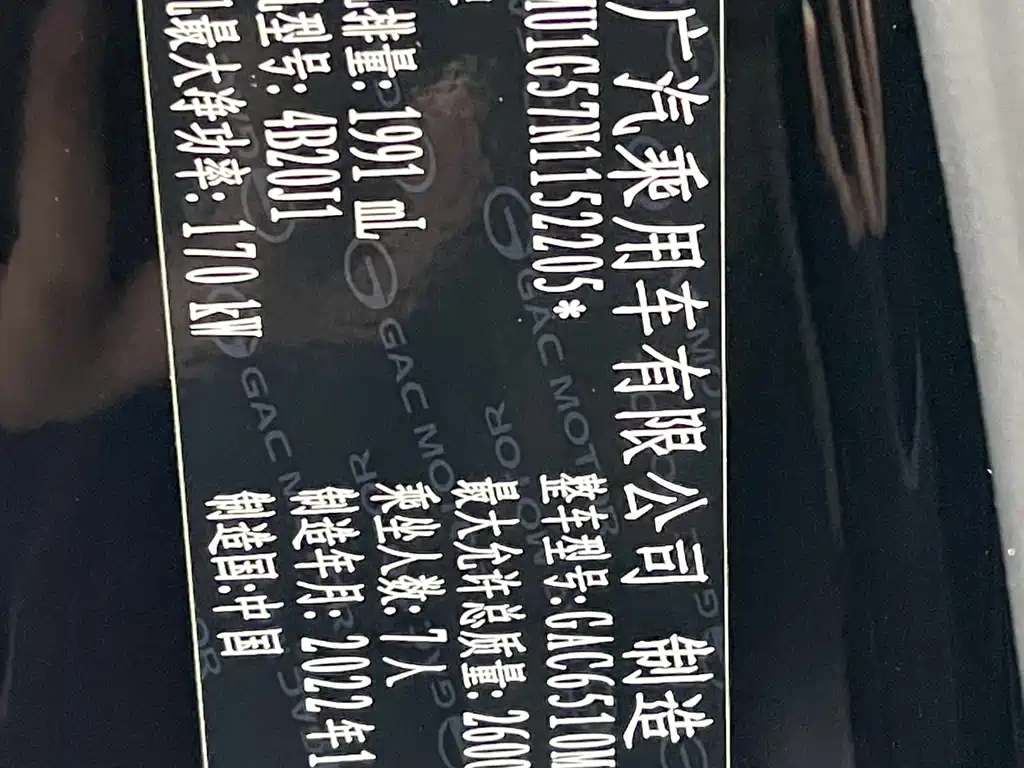 广汽乘用车有限公司 制造
M01G57N1152205* 整车型号:GAC6510M
最大允许总质量: 2600
排量: 1991 mL 乘坐人数: 7人
型号: 4B20J1 制造年月: 2022年1
最大净功率: 170kW 制造国:中国
GAC MOTOR
GAC MOTOR
GAC MOTOR